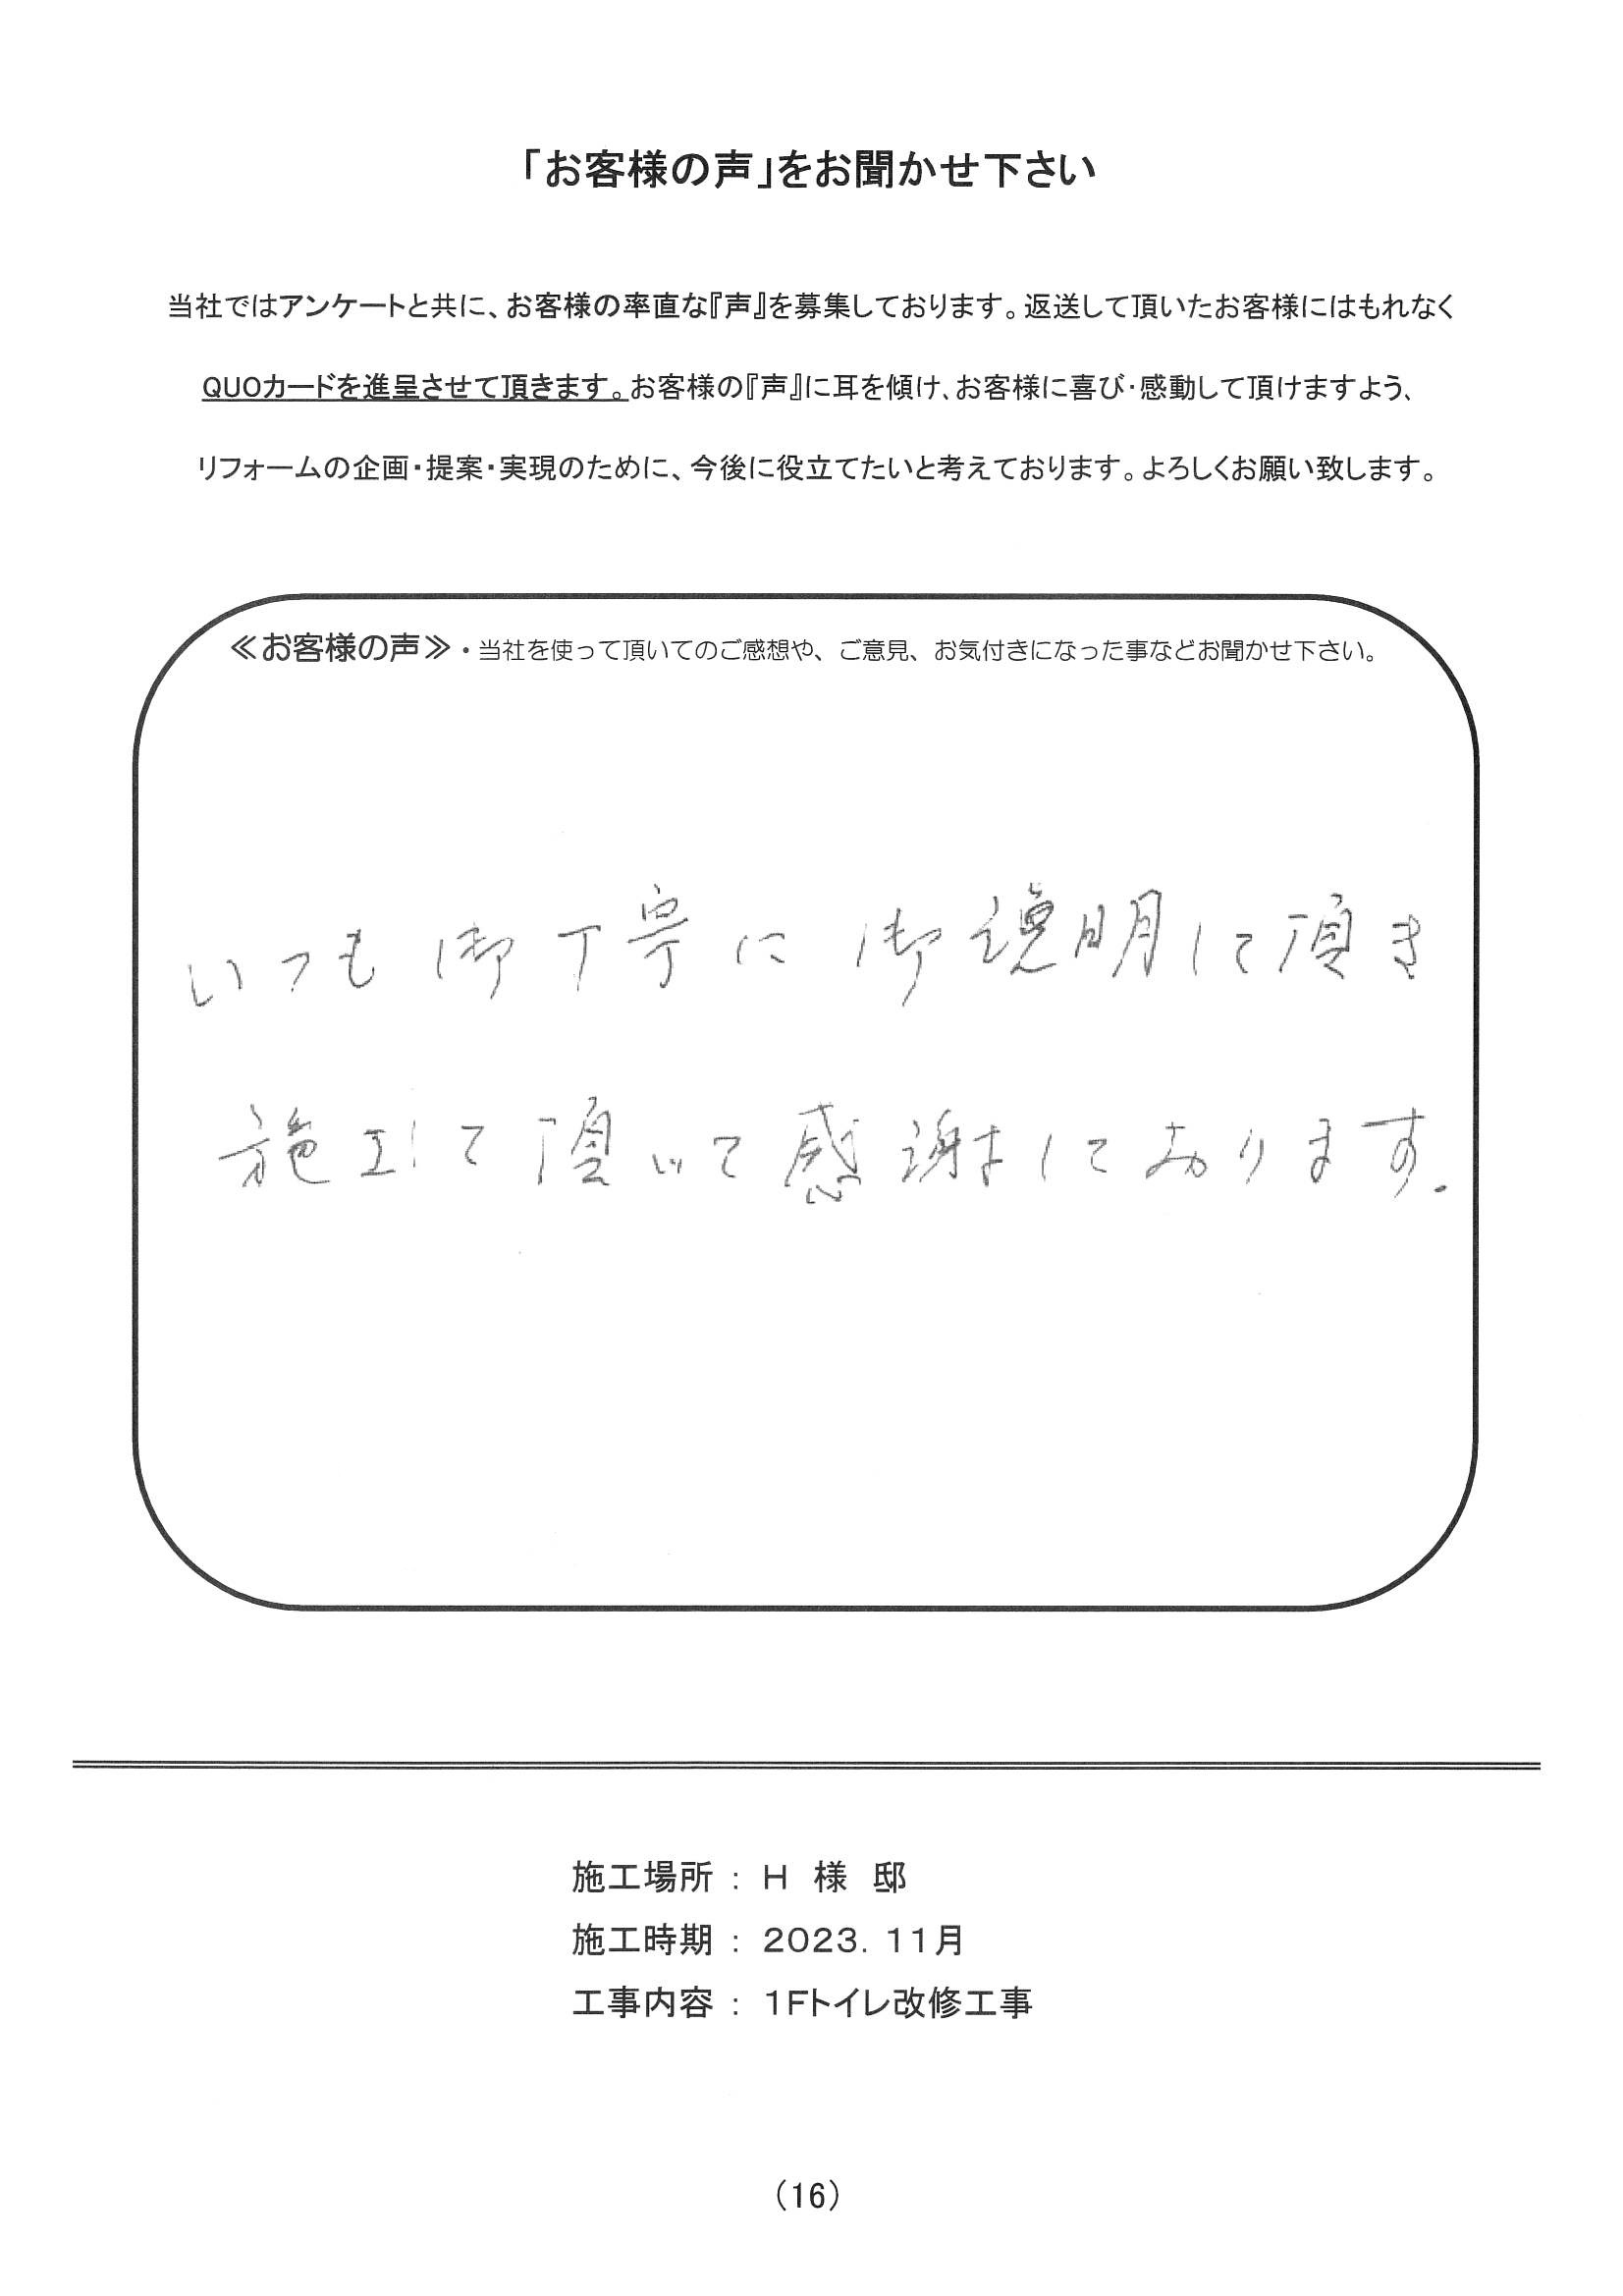 「お客様の声」をお聞かせ下さい
当社ではアンケートと共に、お客様の率直な『声』を募集しております。返送して頂いたお客様にはもれなく
QUOカードを進呈させて頂きます。お客様の『声』に耳を傾け、お客様に喜び・感動して頂けますよう、
リフォームの企画・提案・実現のために、今後に役立てたいと考えております。よろしくお願い致します。
≪お客様の声≫・当社を使って頂いてのご感想や、ご意見、お気付きになった事などお聞かせ下さい。
いつも御丁寧に御説明して頂き
施工して頂いて感謝しております.
施工場所 : H 様 邸
施工時期 : 2023. 11月
工事内容 : 1Fトイレ改修工事
(16)